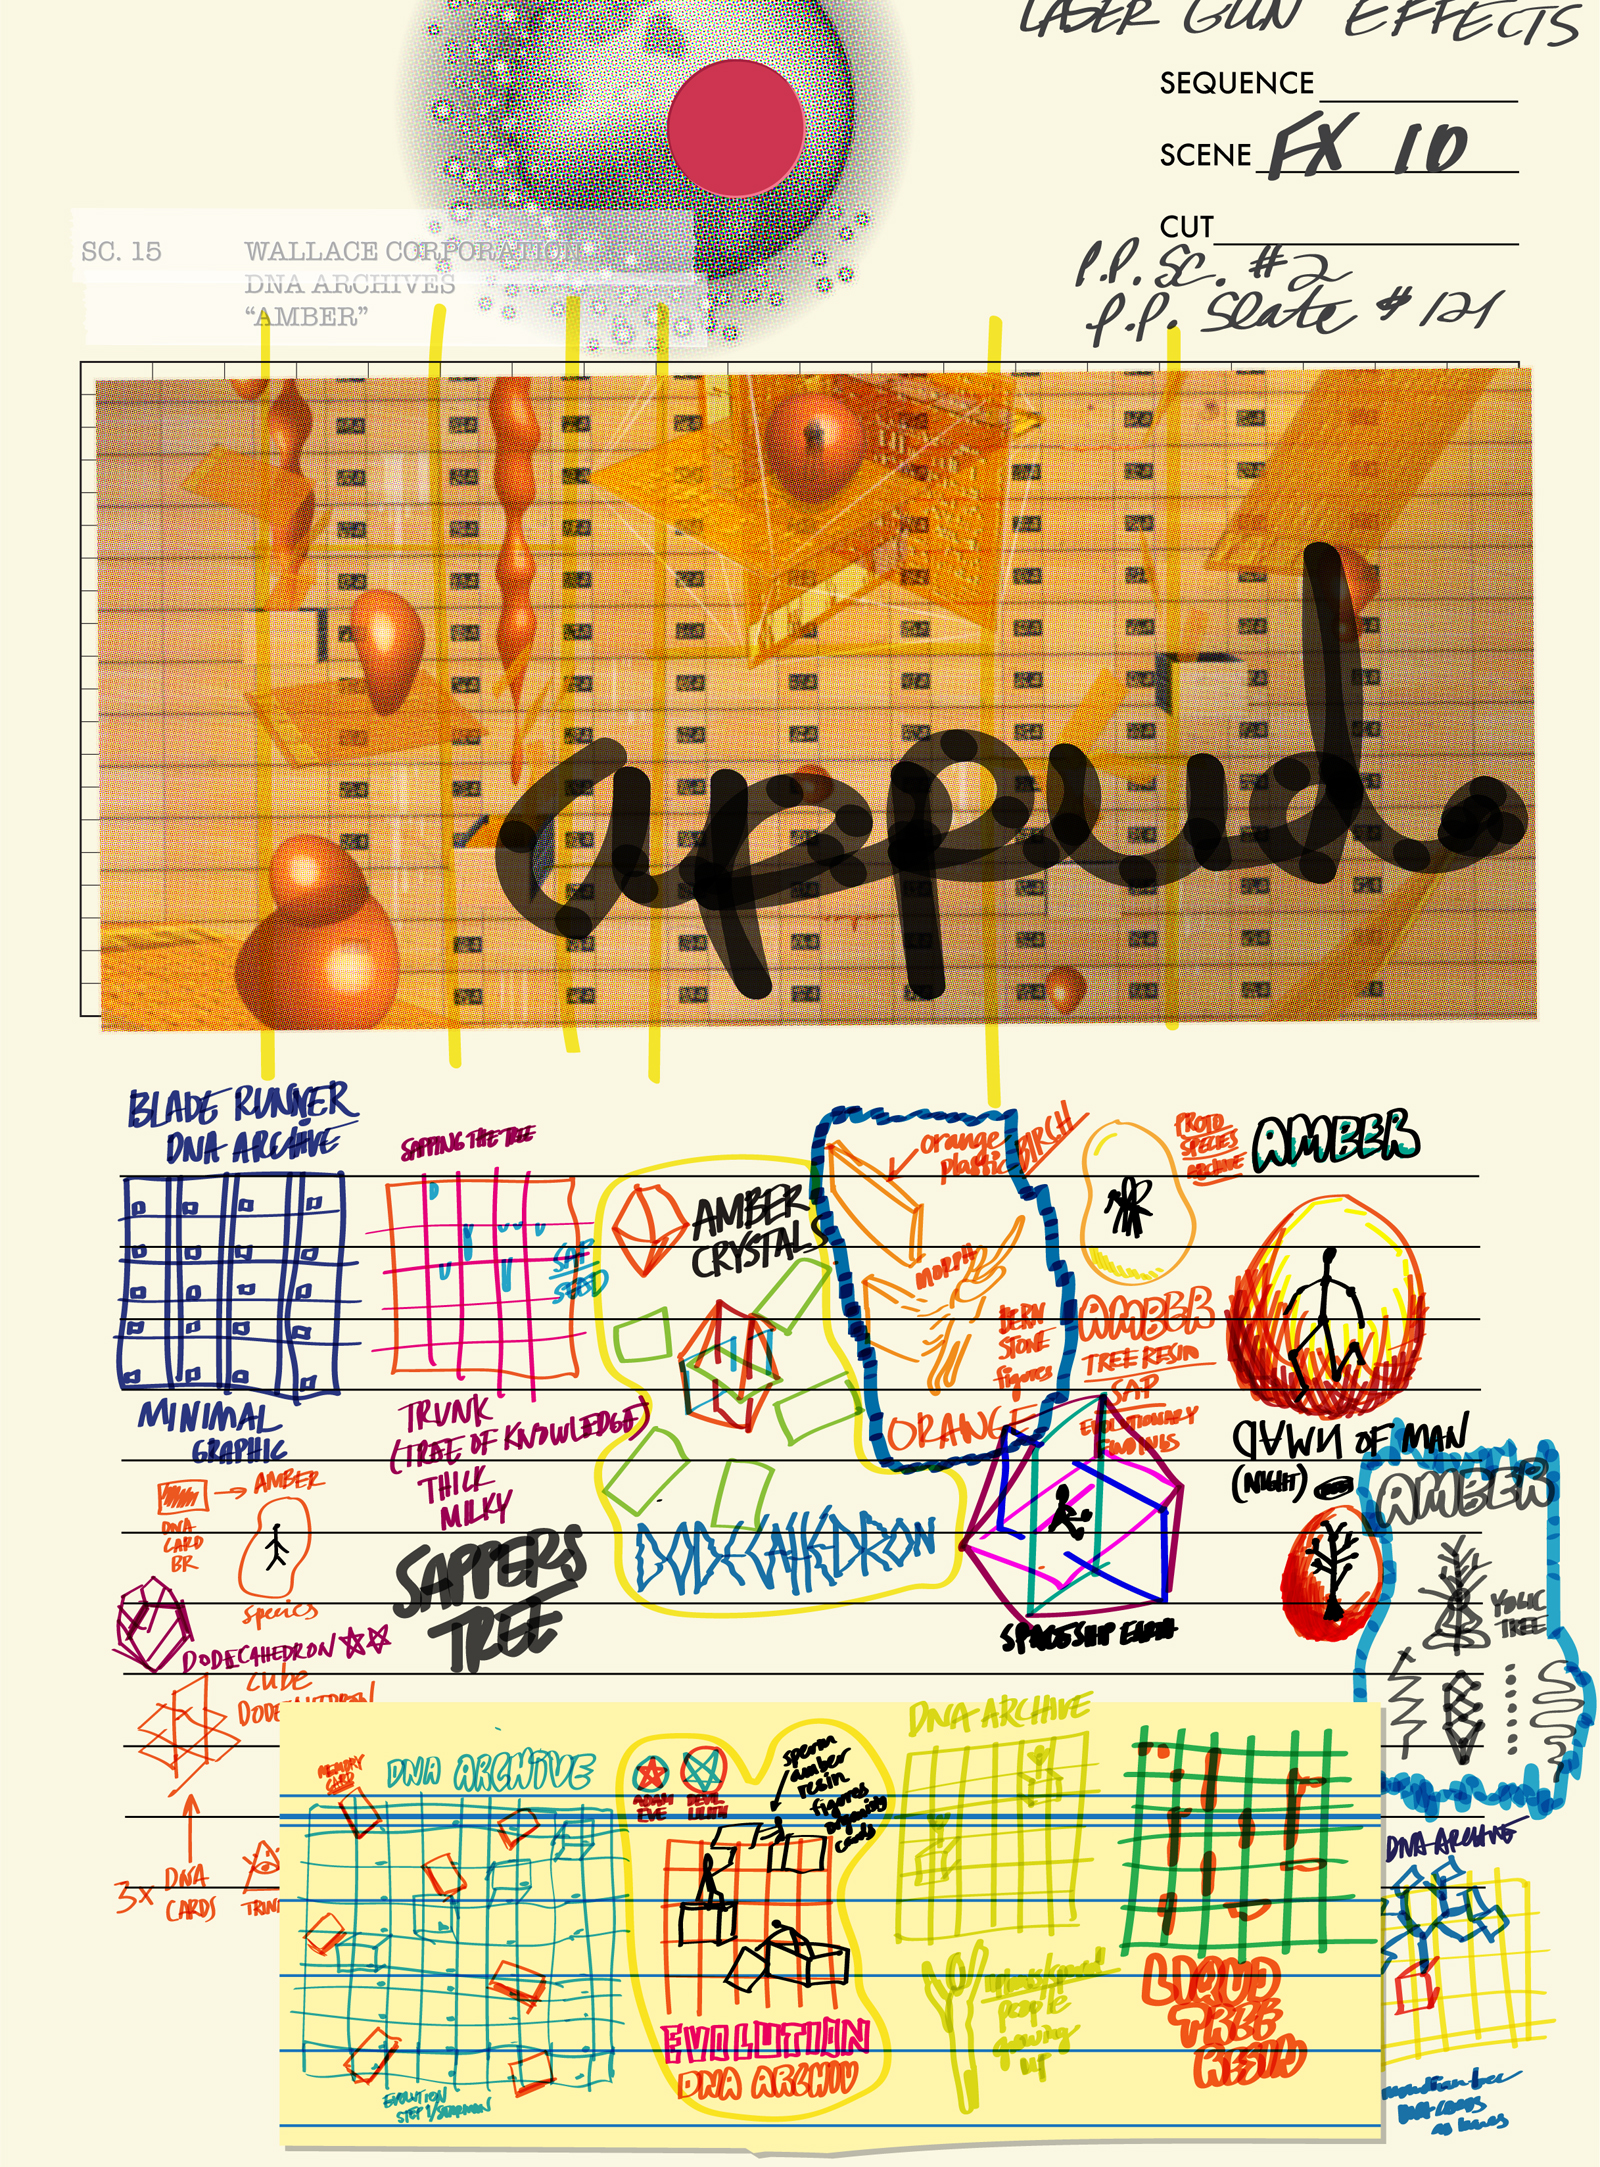 LASER GUN EFFECTS
SEQUENCE
SCENE FX 10
CUT
P.P. SC. #2
P.P. Slate # 121
SC. 15 WALLACE CORPORATION
DNA ARCHIVES
“AMBER”
BLADE RUNNER
DNA ARCHIVE
SAPPING THE TREE
SAP
SEED
AMBER
CRYSTALS
orange
plastic
BIRCH
MORPH
BERN
STONE
figures
ORANGE
PROTO
SPECIES
ARCHIVE
AMBER
AMBER
TREE RESIN
SAP
EVOLUTIONARY
FINDINGS
MINIMAL
GRAPHIC
TRUNK
(TREE OF KNOWLEDGE)
THICK
MILKY
SAPPERS
TREE
DAWN OF MAN
(NIGHT)
AMBER
YOLIC
TREE
AMBER
DNA
CARD
BR
species
DODECAHEDRON
SPACESHIP EARTH
DODECAHEDRON
CUBE
3x DNA
CARDS
MEMORY
CARD
DNA ARCHIVE
ADAM
EVE
DEVIL
LILITH
sperm
amber
resin
figures
organisty
cards
DNA ARCHIVE
EVOLUTION
DNA ARCHIV
people
growing
up
LIQUID
TREE
RESIN
DNA ARCHIVE
EVOLUTION
STEP 1/STARMAN